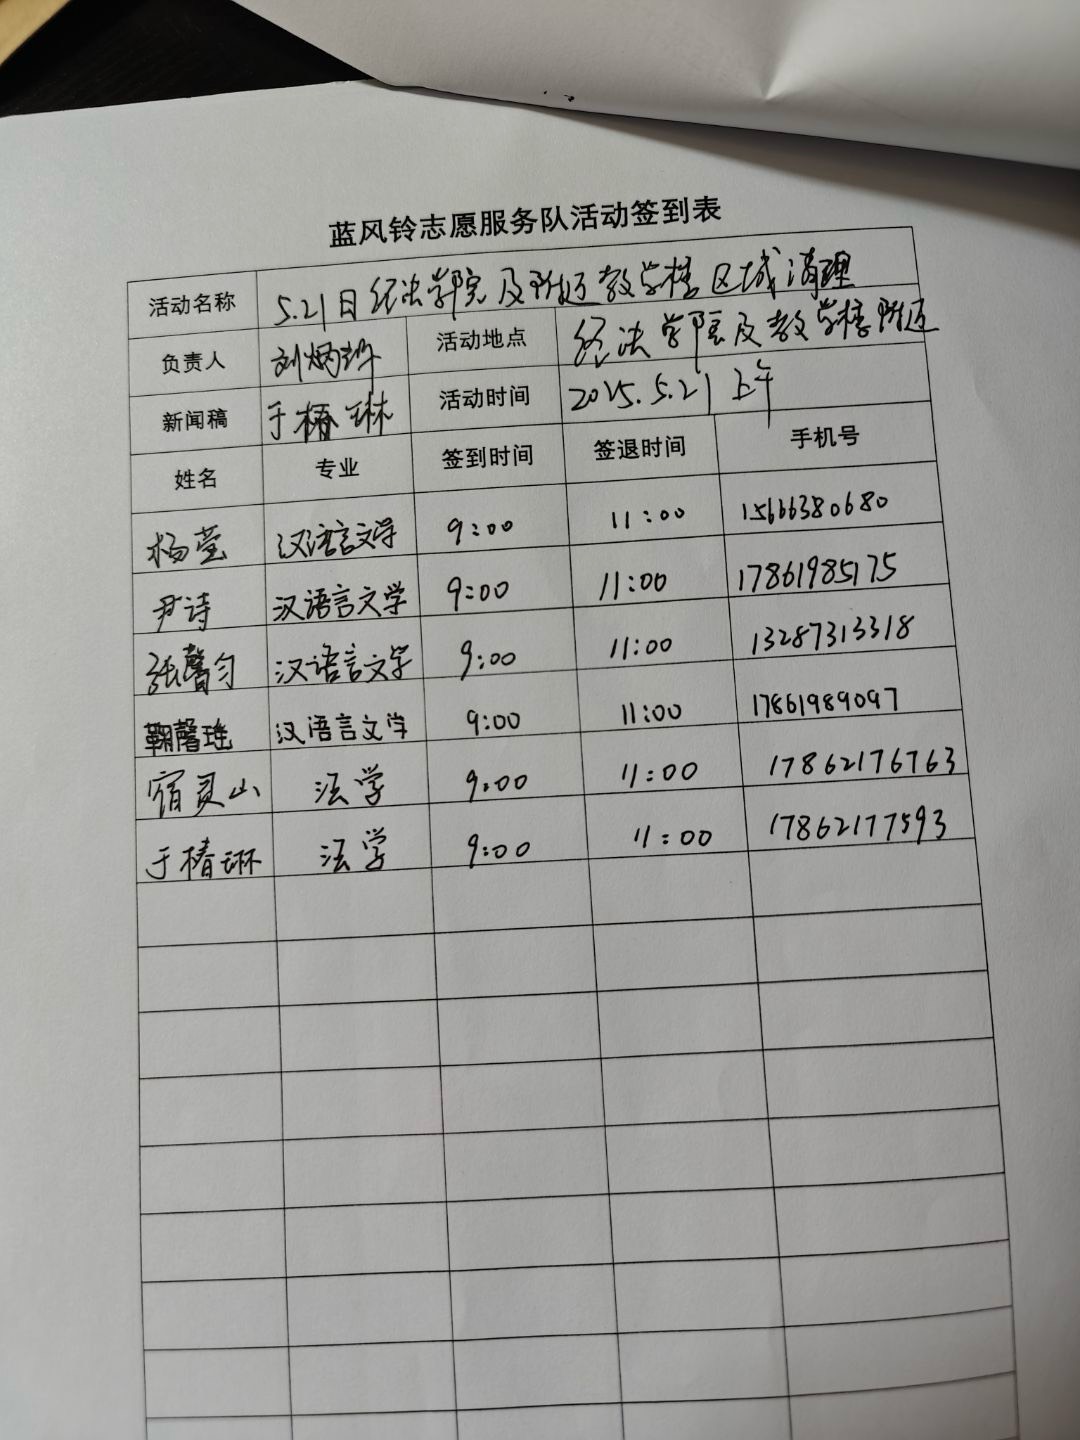 蓝风铃志愿服务队活动签到表
活动名称 5.21日经法学院及附近教学楼区域清理
负责人 刘炳 活动地点 经法学院及教学楼附近
新闻稿 于椿琳 活动时间 2025.5.21上午
姓名 专业 签到时间 签退时间 手机号
杨莹 汉语言文学 9:00 11:00 15666380680
尹诗 汉语言文学 9:00 11:00 17861985175
张馨匀 汉语言文学 9:00 11:00 13287313318
鞠馨瑶 汉语言文学 9:00 11:00 17861989097
宿灵山 法学 9:00 11:00 17862176763
于椿琳 法学 9:00 11:00 17862177593